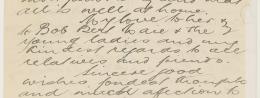 all is well at home.
My love to her &
to Bob Bert & the
young ladies and my
kindest regards to all
relatives and friends.
Sincere good
wishes fondest thoughts
and much affection to